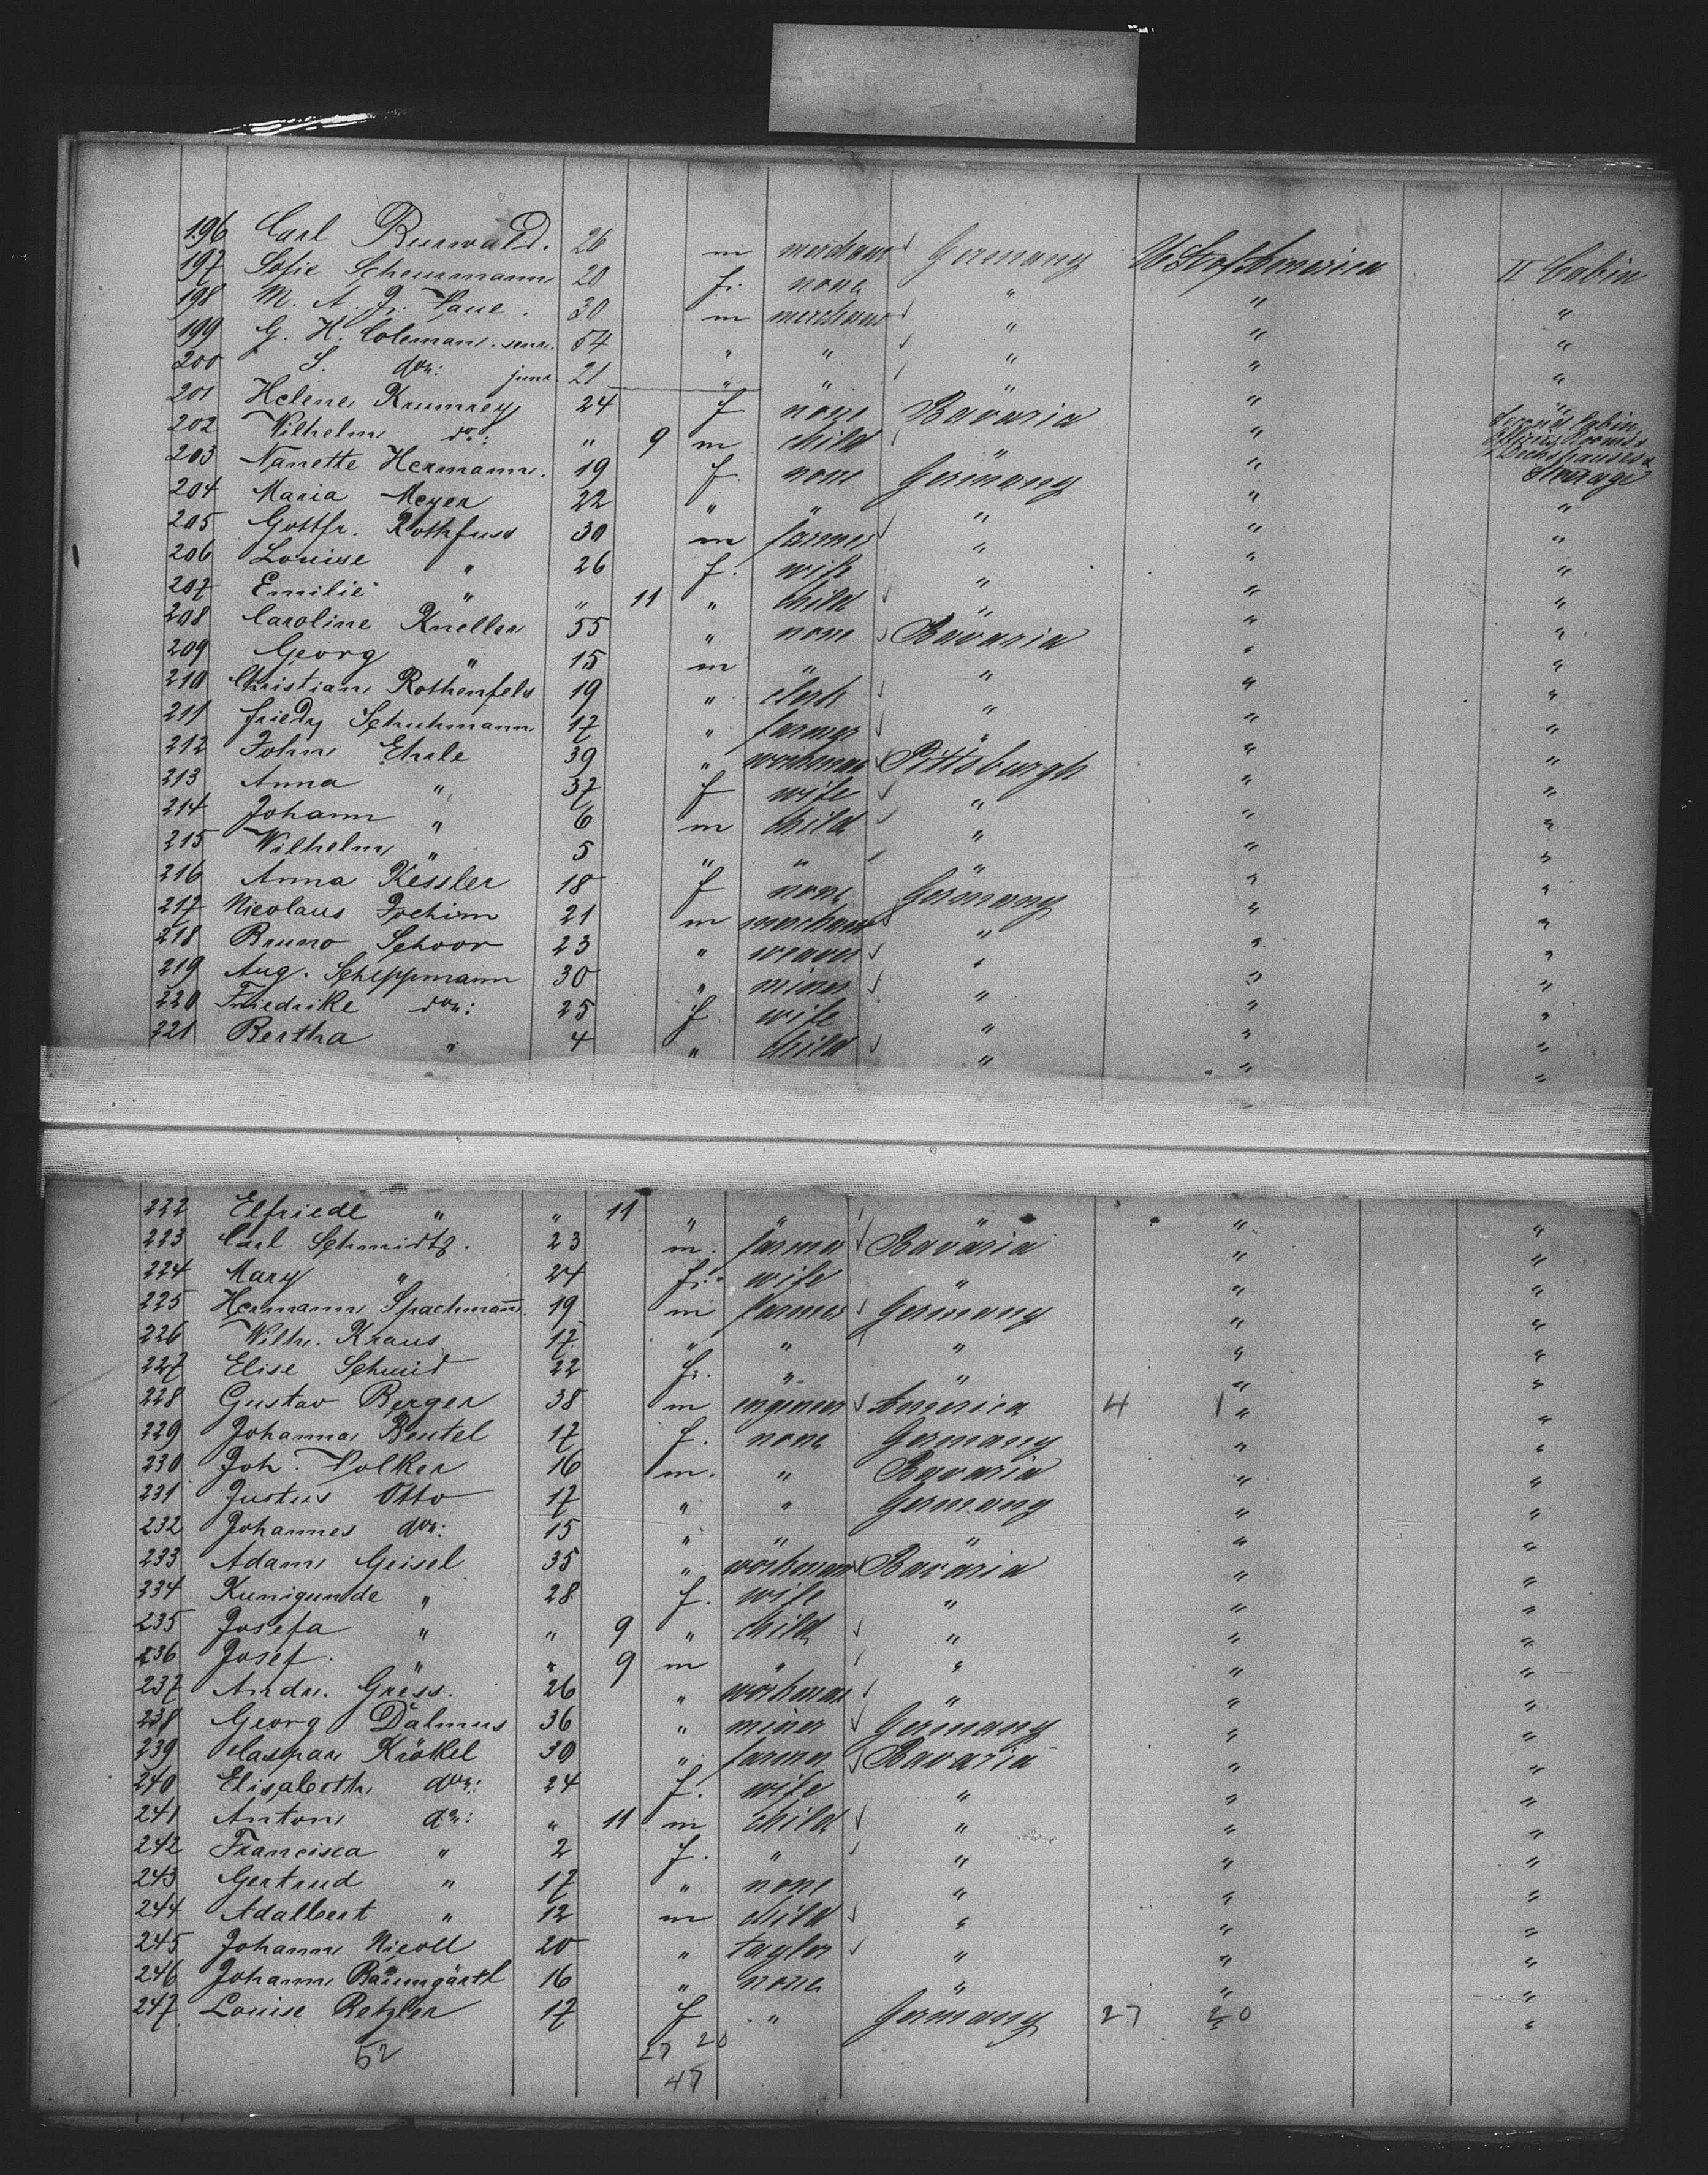 196 Carl Burwald. 26 m merchant Germany U St of America II Cabin
197 Sofie Scheurmann 20 f. none " " "
198 M. A. J. 30 m merchant " " "
199 G. H. Coleman. senr. 54 " " " " "
200 S. do: junr. 21 " " " " "
201 Helene Krumrey 24 f none Bavaria " Second Cabin
202 Wilhelm do: " 9 m child " " Officers Rooms
203 Nanette Hermann. 19 f. none Germany " Deckshouses & Steerage
204 Maria Meyer 22 " " " " "
205 Gottfr. Rothfuss 30 m farmer " " "
206 Louise " 26 f. wife " " "
207 Emilie " " 11 " child " " "
208 Caroline Kneller 55 " none Bavaria " "
209 Georg " 15 m " " " "
210 Christian Rothenfels 19 " clerk " " "
211 Friedr. Schuhmann 17 " farmer " " "
212 John Ehrle 39 " workman Pittsburgh " "
213 Anna " 37 f wife " " "
214 Johann " 6 m child " " "
215 Wilhelm " 5 " " " " "
216 Anna Kessler 18 f none Germany " "
217 Nicolaus Jochim 21 m merchant " " "
218 Bruno Schoor 23 " weaver " " "
219 Aug. Scheppmann 30 " miner " " "
220 Friedrike do: 25 f wife " " "
221 Bertha " 4 " child " " "
222 Elfriede " " 11 " " " " "
223 Carl Schmidtz. 23 m. farmer Bavaria " "
224 Mary " 24 f. wife " " "
225 Hermann Spachmann. 19 m farmer Germany " "
226 Wilh. Kraus 17 " " " " "
227 Elise Schmid 22 f. " " " "
228 Gustav Berger 38 m engineer America 4 1 " "
229 Johanna Beutel 17 f. none Germany " "
230 Joh. Volker 16 m. " Bavaria " "
231 Justus Otto 17 " " Germany " "
232 Johannes do: 15 " " " " "
233 Adam Geisel 35 " workman Bavaria " "
234 Kunigunde " 28 f. wife " " "
235 Josefa " " 9 " child " " "
236 Josef. " " 9 m " " " "
237 Andr. Gress. 26 " workman " " "
238 Georg Dalmus 36 " miner Germany " "
239 Caspar Krökel 30 " farmer Bavaria " "
240 Elisabeth do: 24 f. wife " " "
241 Anton do: " 11 m child " " "
242 Francisca " 2 f. " " " "
243 Gertrud " 17 " none " " "
244 Adalbert " 12 m child " " "
245 Johann Nicoll 20 " taylor " " "
246 Johann Baumgärtl 16 " none " " "
247 Louise Retzler 17 f " Germany 27 20 " "
52 27 20
47